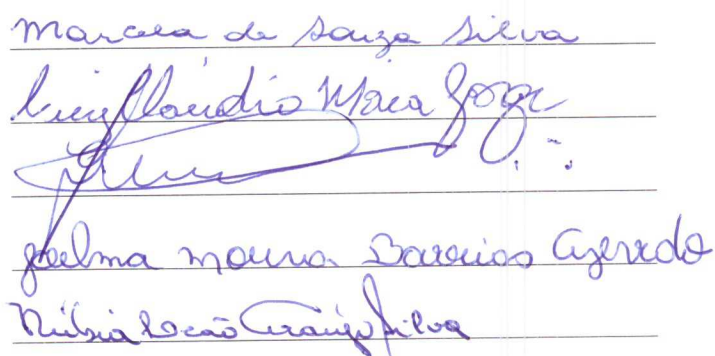 Marcela de Souza Silva
Luiz Cláudio Maia Jorge
Joelma Moura Barreiros Azevedo
Núbia Araújo Silva